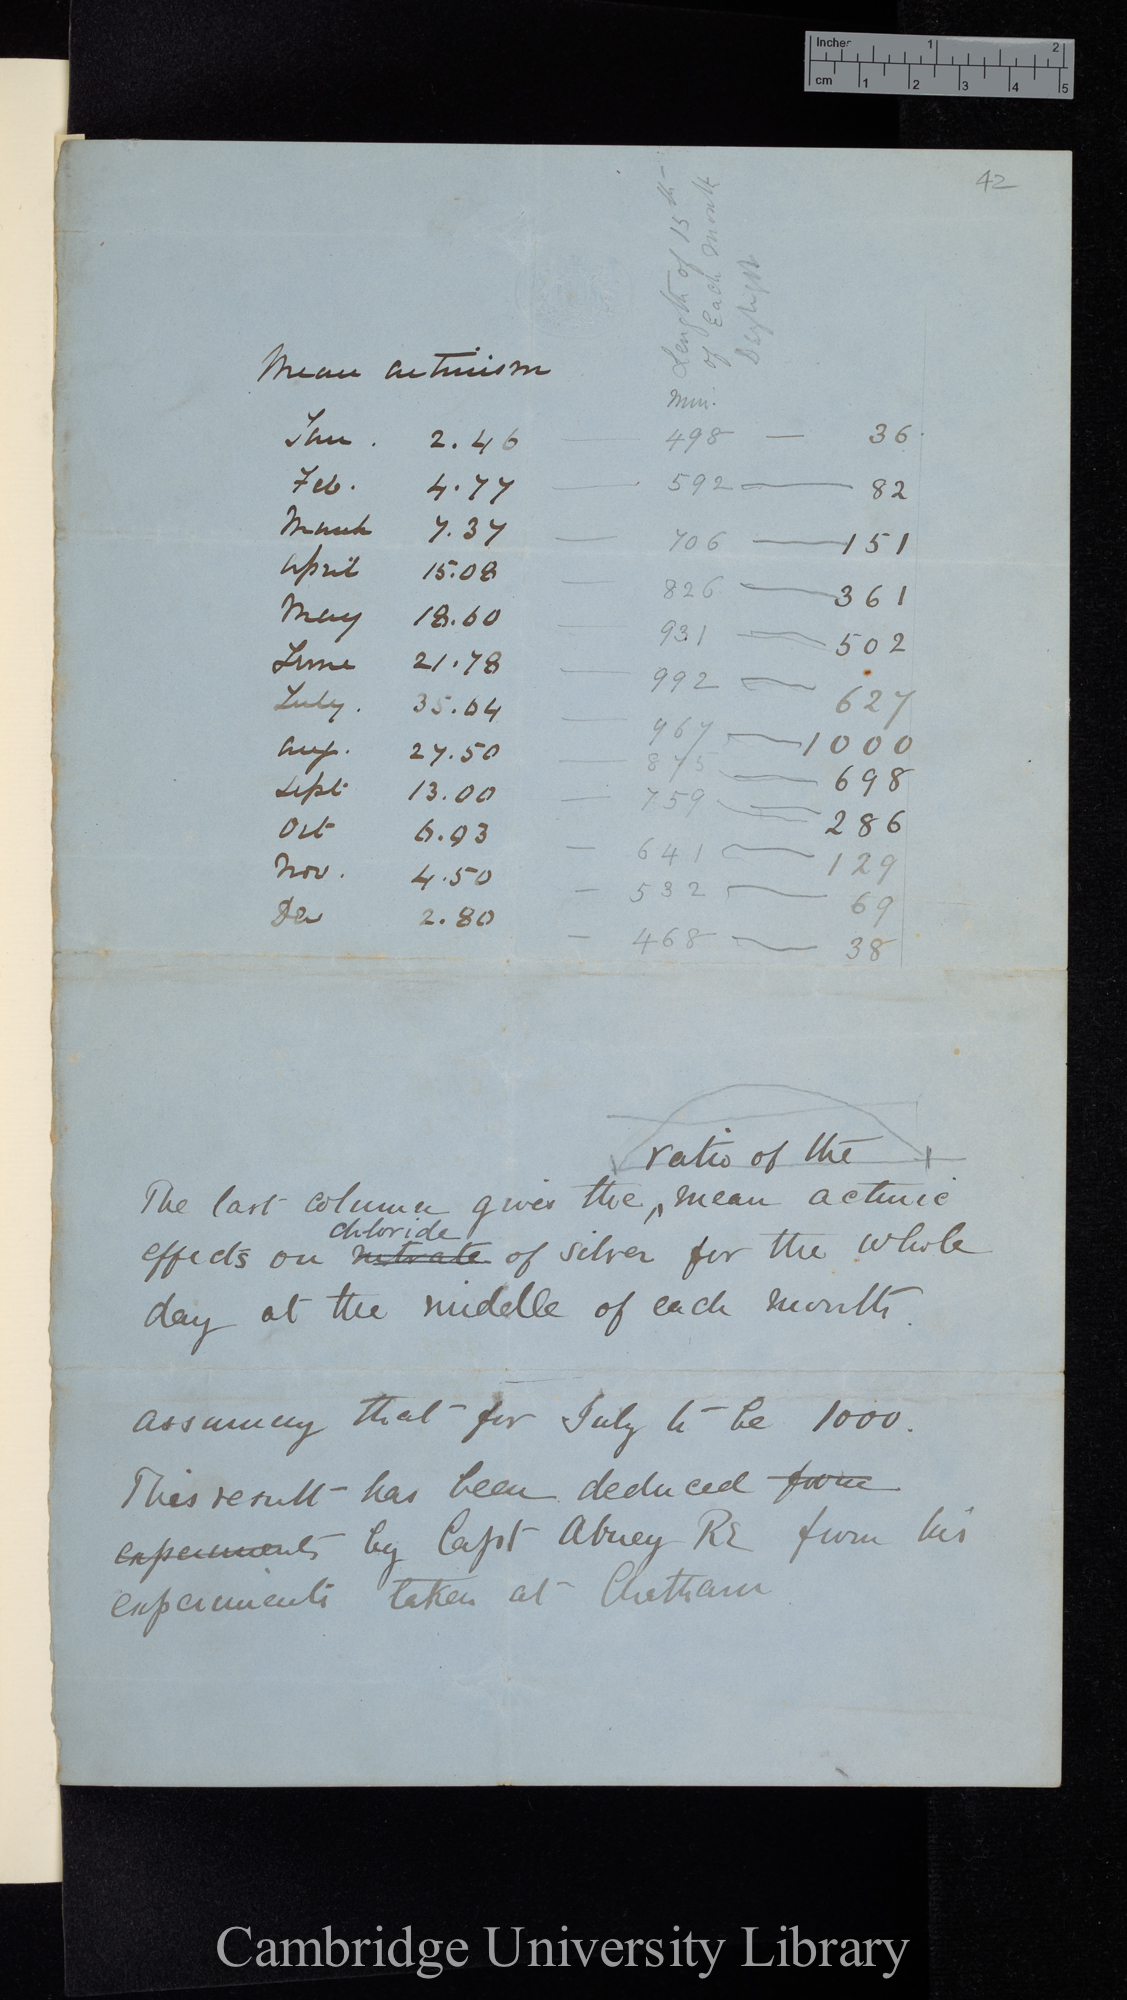 Inches 1 2
cm 1 2 3 4 5
42
Length of 15th
of Each Month
Daylight
Min.
Mean actinism
Jan. 2.46 — 498 — 36.
Feb. 4.77 — 592 — 82
March 7.37 — 706 — 151
April 15.08 — 826 — 361
May 18.60 — 931 — 502
June 21.78 — 992 — 627
July. 35.64 — 967 — 1000
Aug. 27.50 — 875 — 698
Sept 13.00 — 759 — 286
Oct 6.93 — 641 — 129
Nov. 4.50 — 532 — 69
Dec 2.80 — 468 — 38
ratio of the
The last column gives the ‸ mean actinic
chloride
effects on nitrate of silver for the whole
day at the middle of each month.
assuming that for July to be 1000.
This result has been deduced from
experiments by Capt Abney RE from his
experiments taken at Chatham
Cambridge University Library